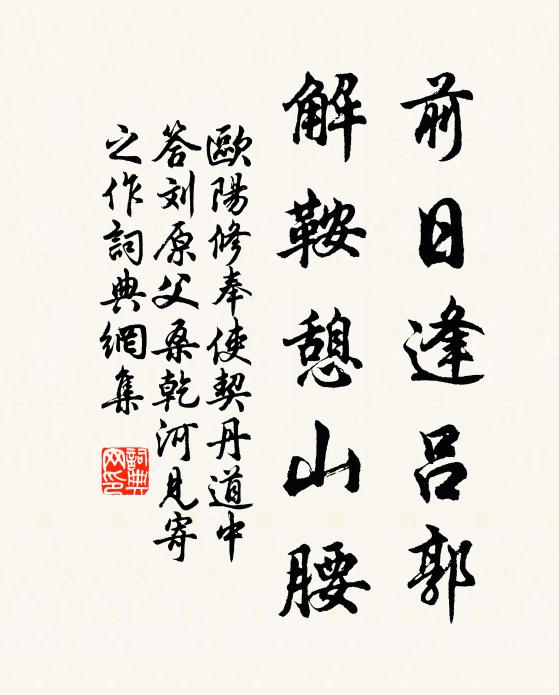 前日逢呂郭
解鞍憩山腰
歐陽修奉使契丹道中
答刘原父桑乾河見寄
之作詞典網集
詞典
网印